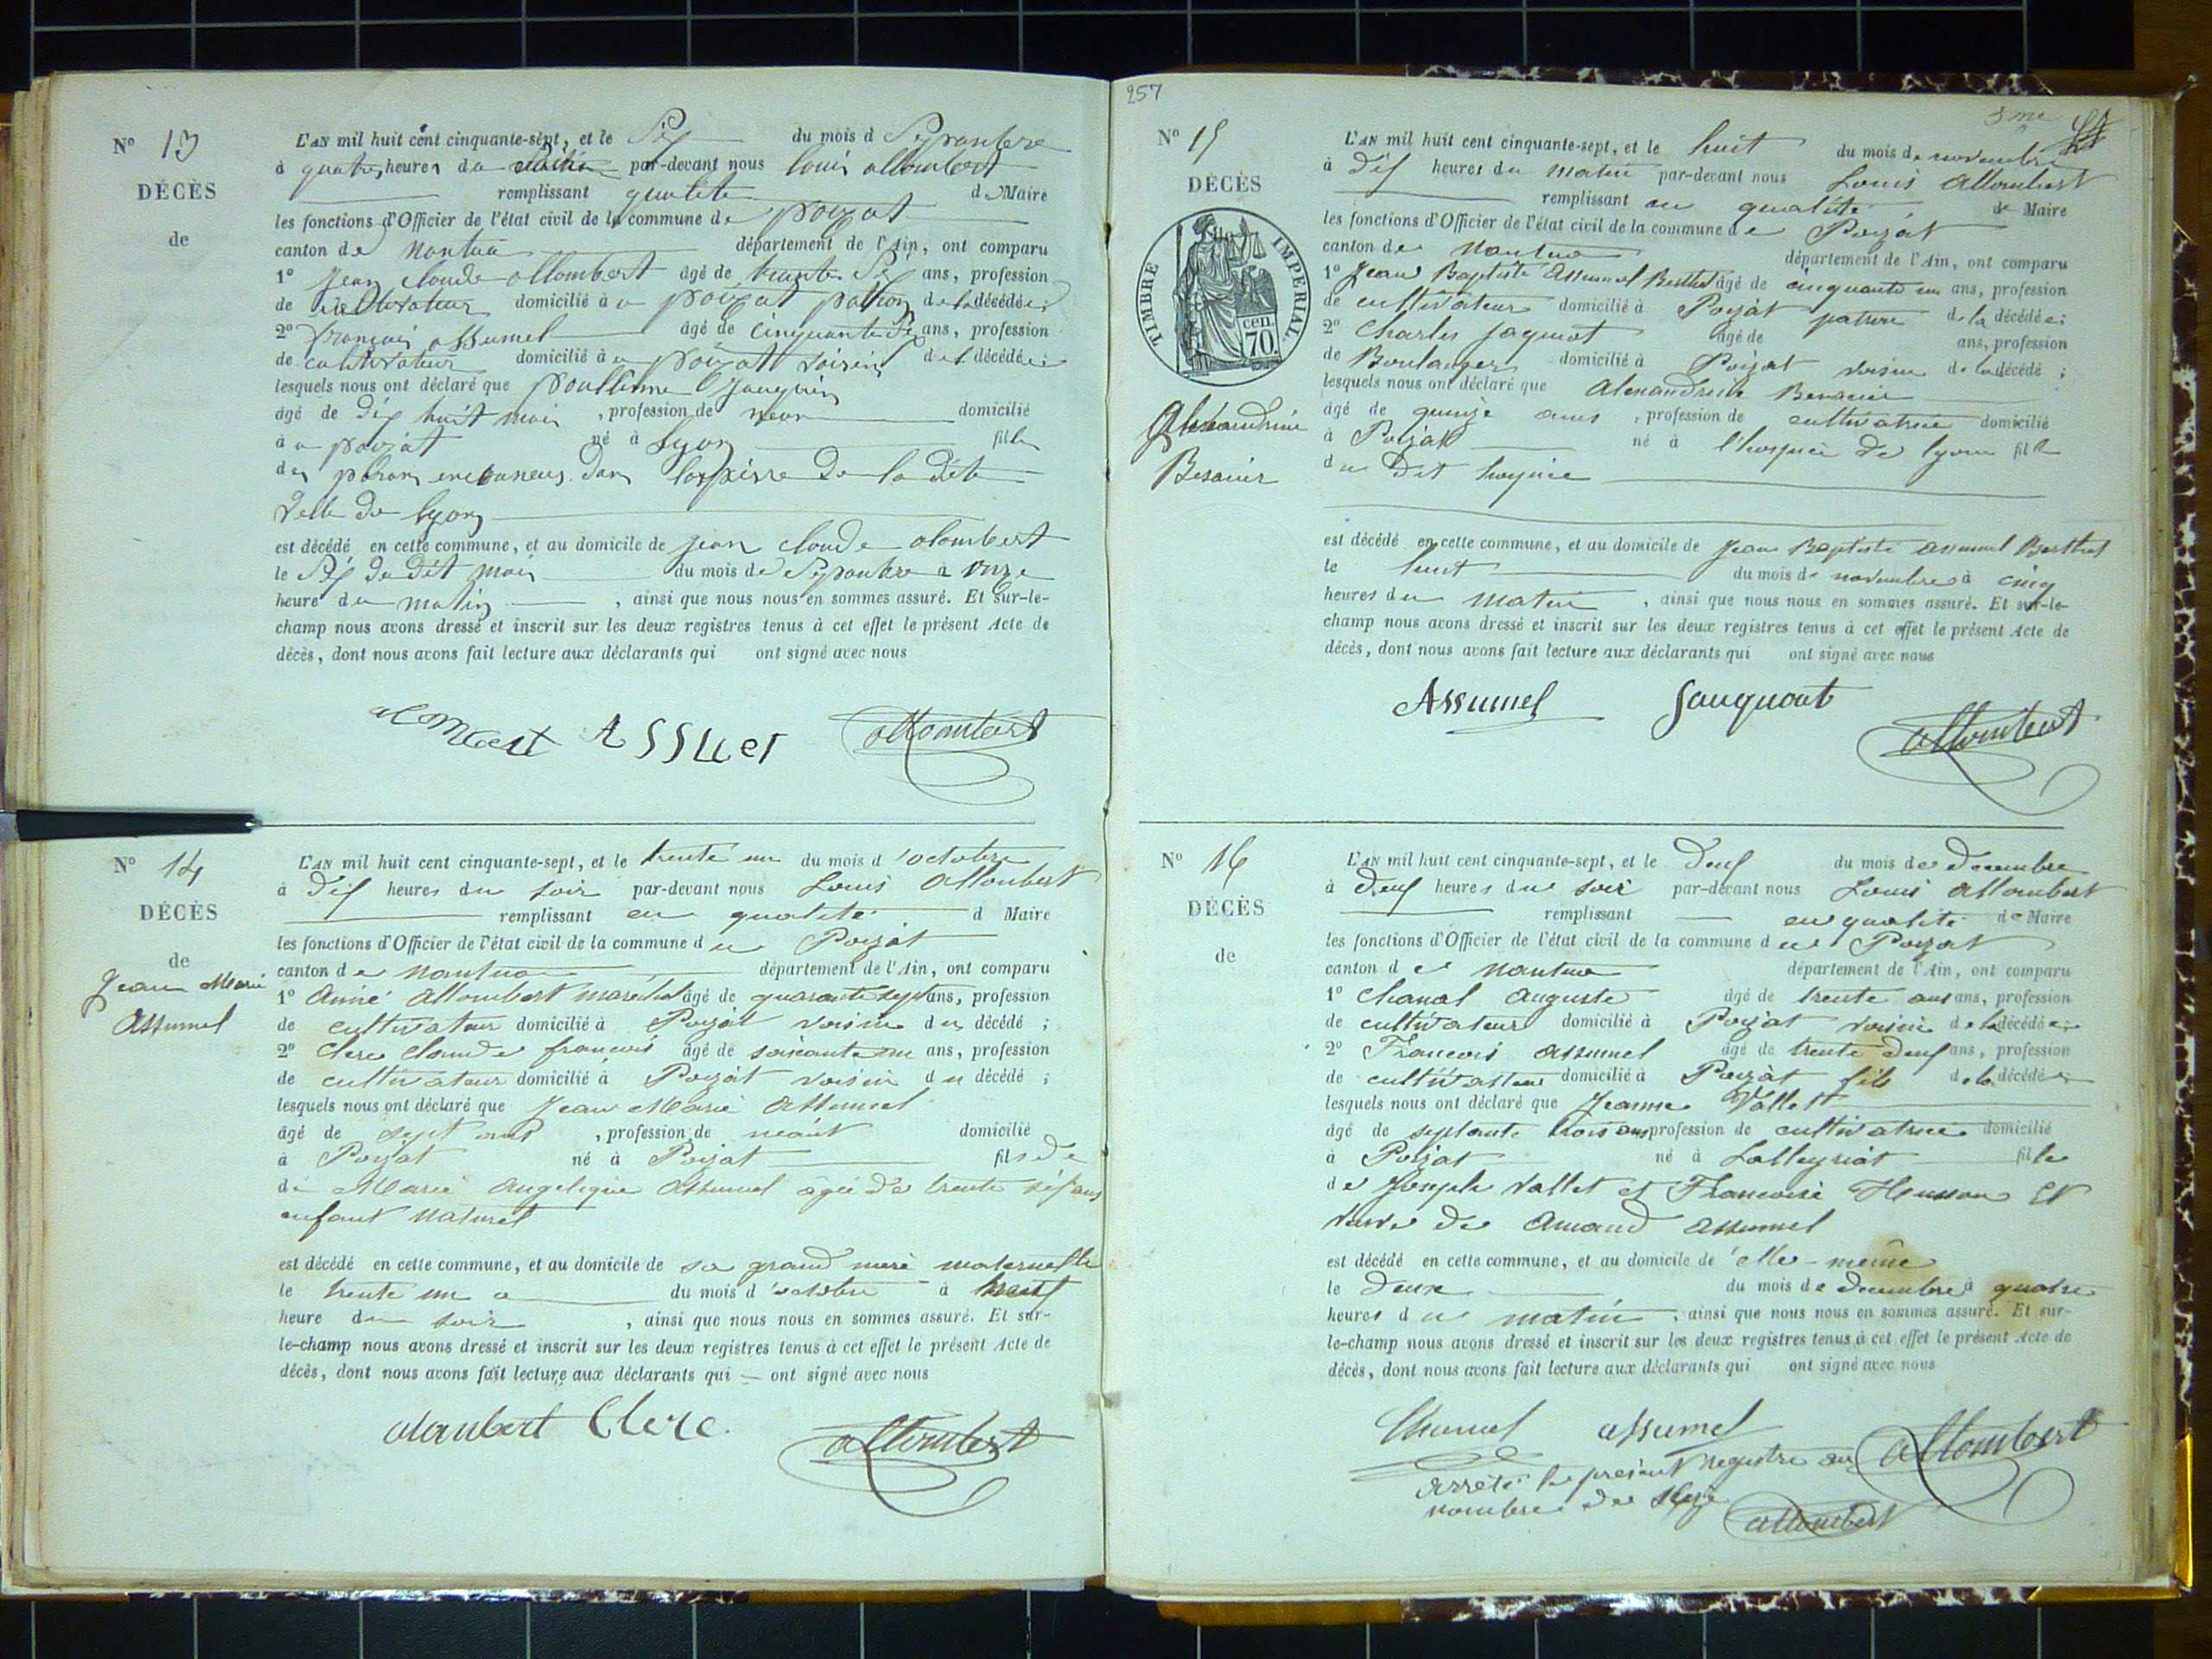 N° 13
DÉCÈS
de
L'AN mil huit cent cinquante-sept, et le Six du mois d Septembre
à quatre heures du par-devant nous louis allombert
remplissant qualité d Maire
les fonctions d'Officier de l'état civil de la commune de poizat
canton de nantua département de l'Ain, ont comparu
1° Jean claude allombert âgé de trante Six ans, profession
de cultivateur domicilié à u poizat patron de la décédée;
2° francois assumel âgé de cinquante Six ans, profession
de cultivateur domicilié à u poizat voisin de l décédée;
lesquels nous ont déclaré que
âgé de dix huit mois , profession de domicilié
à u poizat né à Lyon fille
de parans enconneus dans de la dite
ville de Lyon
est décédé en cette commune, et au domicile de jean claude alombert
le Six du dit mois du mois de Septembre à onze
heure du matin , ainsi que nous nous en sommes assuré. Et sur-le-
champ nous avons dressé et inscrit sur les deux registres tenus à cet effet le présent Acte de
décès, dont nous avons fait lecture aux déclarants qui ont signé avec nous
allombert
N° 14
DÉCÈS
de
Jean Marie
Assumel
L'AN mil huit cent cinquante-sept, et le trente un du mois d'octobre
à dix heures du soir par-devant nous Louis Allombert
remplissant en qualité d Maire
les fonctions d'Officier de l'état civil de la commune du Poizat
canton de nantua département de l'Ain, ont comparu
1° Aimé Allombert marechal âgé de quarante sept ans, profession
de cultivateur domicilié à Poizat voisin du décédé ;
2° Clerc Claude francois âgé de soixante un ans, profession
de cultivateur domicilié à Poizat voisin du décédé ;
lesquels nous ont déclaré que Jean Marie Assumel
âgé de sept ans , profession de néant domicilié
à Poizat né à Poizat fils de
de Marie Angelique Assumel agée de trente six ans
enfant naturel
est décédé en cette commune, et au domicile de sa grand mere maternelle
le trente un du mois d'octobre à
heure du soir , ainsi que nous nous en sommes assuré. Et sur-
le-champ nous avons dressé et inscrit sur les deux registres tenus à cet effet le présent Acte de
décès, dont nous avons fait lecture aux déclarants qui — ont signé avec nous
alombert Clerc allombert
257
N° 15
DÉCÈS
TIMBRE IMPERIAL
70 cen.
Alexandrine
Besacier
L'AN mil huit cent cinquante-sept, et le huit du mois de novembre
à dix heures du matin par-devant nous Louis Allombert
remplissant en qualité de Maire
les fonctions d'Officier de l'état civil de la commune de Poizat
canton de Nantua département de l'Ain, ont comparu
1° Jean Baptiste Assumel Berthet âgé de cinquante un ans, profession
de cultivateur domicilié à Poizat patron de la décédée;
2° Charles Jaquiot âgé de ans, profession
de Boulanger domicilié à Poizat voisin de la décédé ;
lesquels nous ont déclaré que Alexandrine
âgé de quinze ans , profession de cultivatrice domicilié
à Poizat né à l'hospice de lyon fille
du dit hospice
est décédé en cette commune, et au domicile de Jean Baptiste assumel Berthet
le huit du mois de novembre à cinq
heures du matin , ainsi que nous nous en sommes assuré. Et sur-le-
champ nous avons dressé et inscrit sur les deux registres tenus à cet effet le présent Acte de
décès, dont nous avons fait lecture aux déclarants qui ont signé avec nous
Assumel allombert
N° 16
DÉCÈS
de
L'AN mil huit cent cinquante-sept, et le Deux du mois de decembre
à deux heures du soir par-devant nous Louis Allombert
remplissant en qualité de Maire
les fonctions d'Officier de l'état civil de la commune du Poizat
canton de Nantua département de l'Ain, ont comparu
1° Chanal Auguste âgé de trente ans ans, profession
de cultivateur domicilié à Poizat voisin de la décédée;
2° Francois Assumel âgé de trente deux ans, profession
de cultivateur domicilié à Poizat fils de la décédée
lesquels nous ont déclaré que Jeanne Vallet
âgé de septante trois ans profession de cultivatrice domicilié
à Poizat né à Lalleyriat fille
de Joseph Vallet et Francoise et
veuve de Amand Assumel
est décédé en cette commune, et au domicile de elle-même
le deux du mois de decembre à quatre
heures du matin , ainsi que nous nous en sommes assuré. Et sur-
le-champ nous avons dressé et inscrit sur les deux registres tenus à cet effet le présent Acte de
décès, dont nous avons fait lecture aux déclarants qui ont signé avec nous
assumel allombert
Arrêté le présent registre au
nombre de Seize
allombert